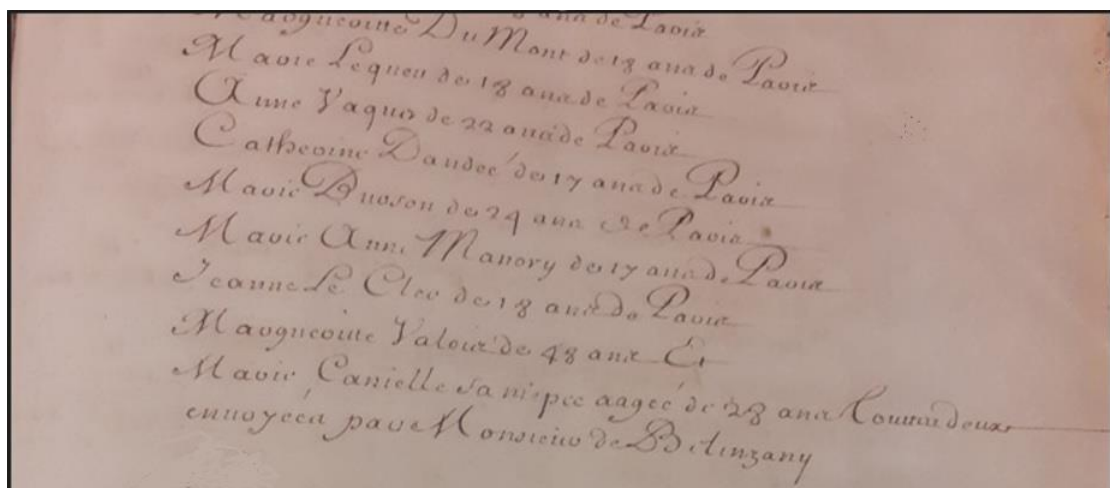 ans de Paris
Margueritte Du Mont de 18 ans de Paris
Marie Lequeu de 18 ans de Paris
Anne Vaquer de 22 ans de Paris
Catherine Dandee de 17 ans de Paris
Marie Buoson de 24 ans de Paris
Marie Anne Manory de 17 ans de Paris
Jeanne Le Clec de 18 ans de Paris
Margueritte Valois de 48 ans Et
Marie Canielle sa niepce aageé de 28 ans Toutes deux
envoyeés par Monsieur de Bilinzany